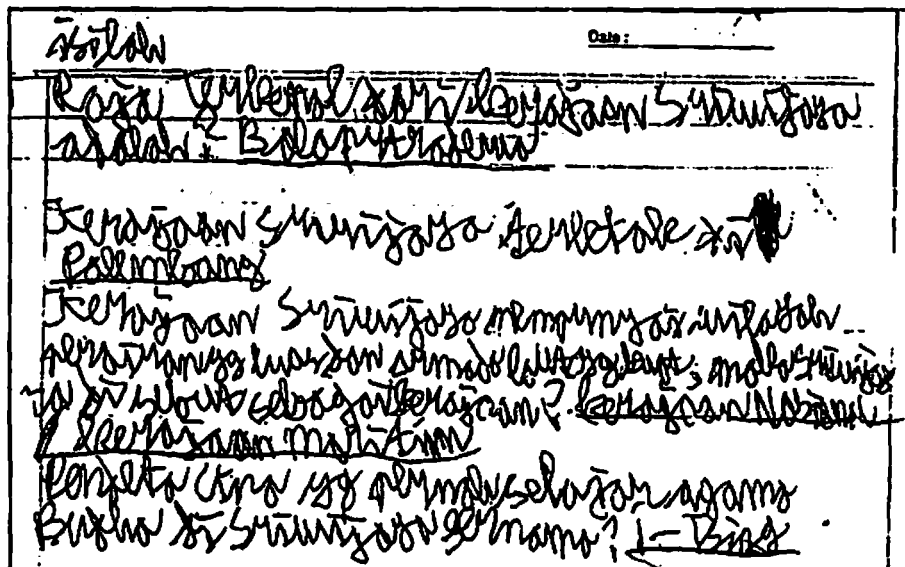 istilah
Date:
Raja terkenal dari kerajaan Sriwijaya
adalah : Balaputradewa
Kerajaan Sriwijaya terletak di
Palembang
Kerajaan Sriwijaya mempunyai wilayah
perairan yg luas dan armada laut yg kuat, maka Sriwija
ya di sebut sebagai kerajaan? kerajaan Nasional
/ kerajaan maritim
Pendeta Cina yg pernah belajar agama
Budha di Sriwijaya bernama? I-